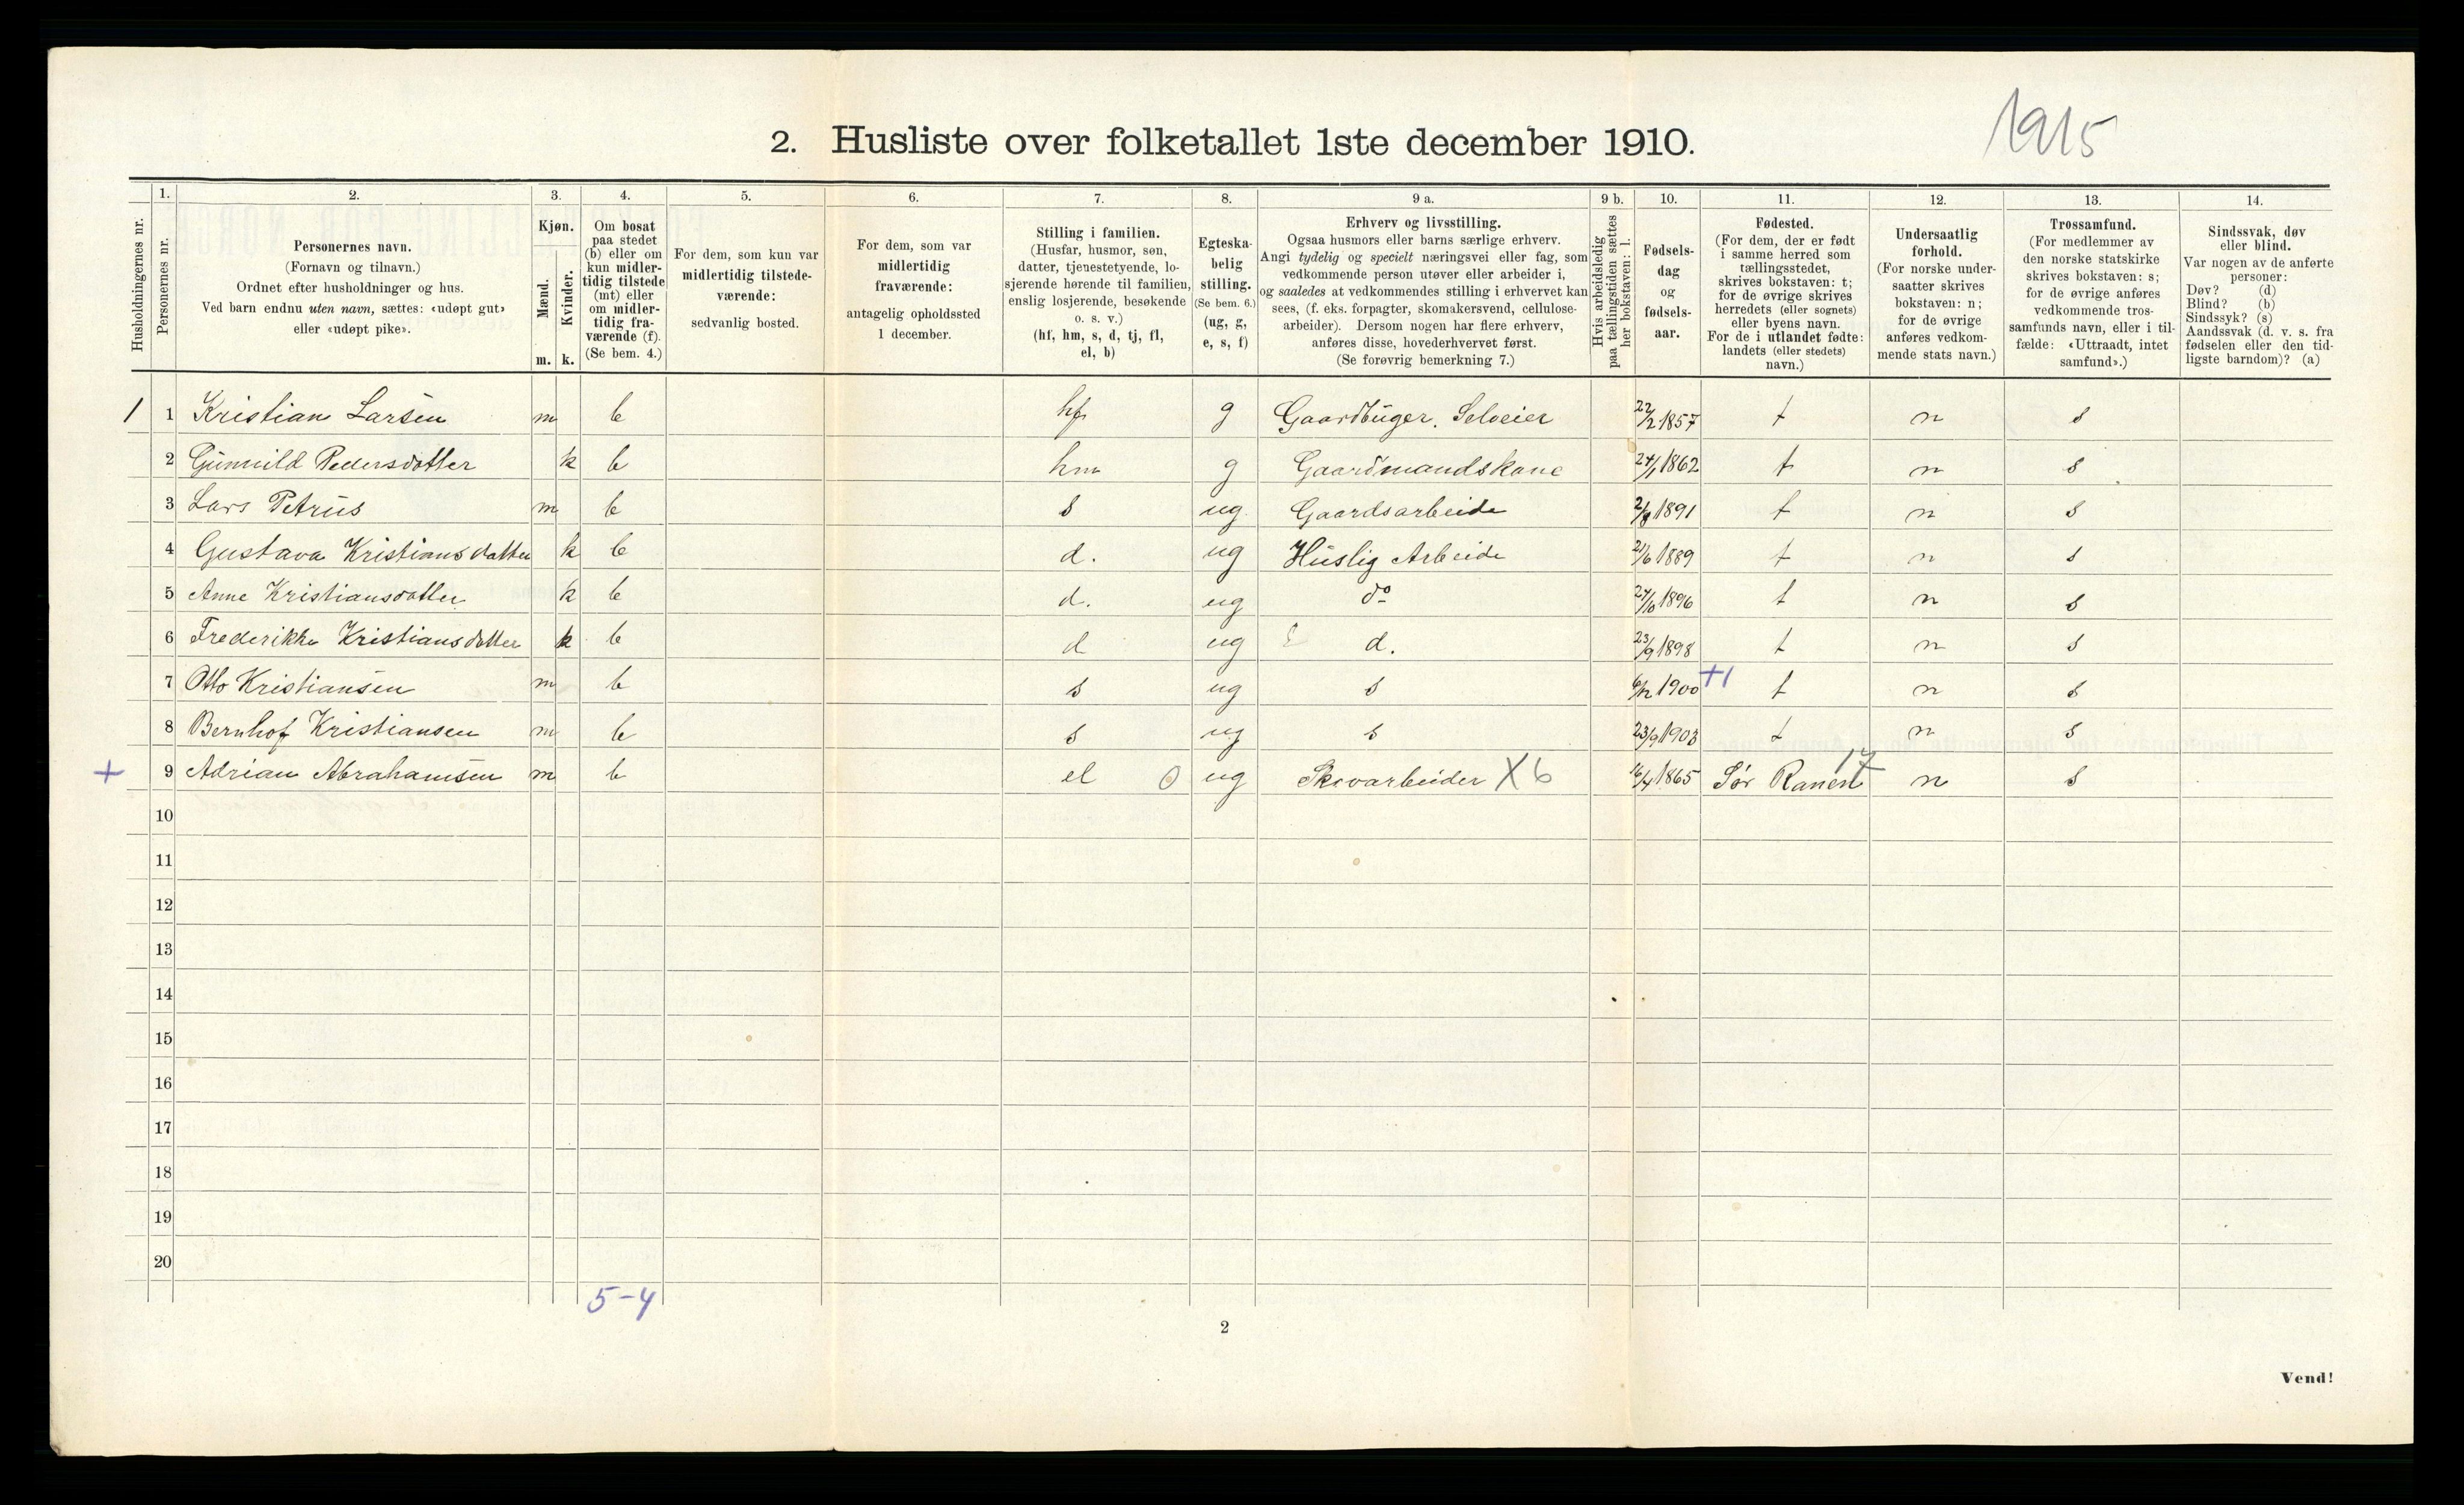 1915
2. Husliste over folketallet 1ste december 1910.
Husholdningernes nr.
1.
Personernes nr.
2.
Personernes navn.
(Fornavn og tilnavn.)
Ordnet efter husholdninger og hus.
Ved barn endnu uten navn, sættes: «udøpt gut»
eller «udøpt pike».
3.
Kjøn.
Mænd.
Kvinder.
m. k.
4.
Om bosat
paa stedet
(b) eller om
kun midler-
tidig tilstede
(mt) eller
om midler-
tidig fra-
værende (f).
(Se bem. 4.)
5.
For dem, som kun var
midlertidig tilstede-
værende:
sedvanlig bosted.
6.
For dem, som var
midlertidig
fraværende:
antagelig opholdssted
1 december.
7.
Stilling i familien.
(Husfar, husmor, søn,
datter, tjenestetyende, lo-
sjerende hørende til familien,
enslig losjerende, besøkende
o. s. v.)
(hf, hm, s, d, tj, fl,
el, b)
8.
Egteska-
belig
stilling.
(Se bem. 6.)
(ug, g,
e, s, f)
9 a.
Erhverv og livsstilling.
Ogsaa husmors eller barns særlige erhverv.
Angi tydelig og specielt næringsvei eller fag, som
vedkommende person utøver eller arbeider i,
og saaledes at vedkommendes stilling i erhvervet kan
sees, (f. eks. forpagter, skomakersvend, cellulose-
arbeider). Dersom nogen har flere erhverv,
anføres disse, hovederhvervet først.
(Se forøvrig bemerkning 7.)
9 b.
Hvis arbeidsledig
paa tællingstiden sættes
her bokstaven: l.
10.
Fødsels-
dag
og
fødsels-
aar.
11.
Fødested.
(For dem, der er født
i samme herred som
tællingsstedet,
skrives bokstaven: t;
for de øvrige skrives
herredets (eller sognets)
eller byens navn.
For de i utlandet fødte:
landets (eller stedets)
navn.)
12.
Undersaatlig
forhold.
(For norske under-
saatter skrives
bokstaven: n;
for de øvrige
anføres vedkom-
mende stats navn.)
13.
Trossamfund.
(For medlemmer av
den norske statskirke
skrives bokstaven: s;
for de øvrige anføres
vedkommende tros-
samfunds navn, eller i til-
fælde: «Uttraadt, intet
samfund».)
14.
Sindssvak, døv
eller blind.
Var nogen av de anførte
personer:
Døv? (d)
Blind? (b)
Sindssyk? (s)
Aandssvak (d. v. s. fra
fødselen eller den tid-
ligste barndom)? (a)
1 1 Kristian Larsen m b hf g Gaardbuger. Selveier 22/2 1857 t n s
2 Gunnild Pedersdatter k b hm g Gaardmandskone 24/1 1862 t n s
3 Lars Petrus m b s ug Gaardsarbeide 2/8 1891 t n s
4 Gustava Kristiansdatter k b d. ug Huslig Arbeide 21/6 1889 t n s
5 Anne Kristiansdatter k b d. ug do 24/10 1896 t n s
6 Frederikke Kristiansdatter k b d ug d. 23/9 1898 t n s
7 Otto Kristiansen m b s ug s 6/12 1900 +1 t n s
8 Bernhof Kristiansen m b s ug s 23/9 1903 t n s
+ 9 Adrian Abrahamsen m b el 0 ug Skovarbeider X 6 16/4 1865 Sør Ranen 17 n s
10
11
12
13
14
15
16
17
18
19
20
5-4
2
Vend!